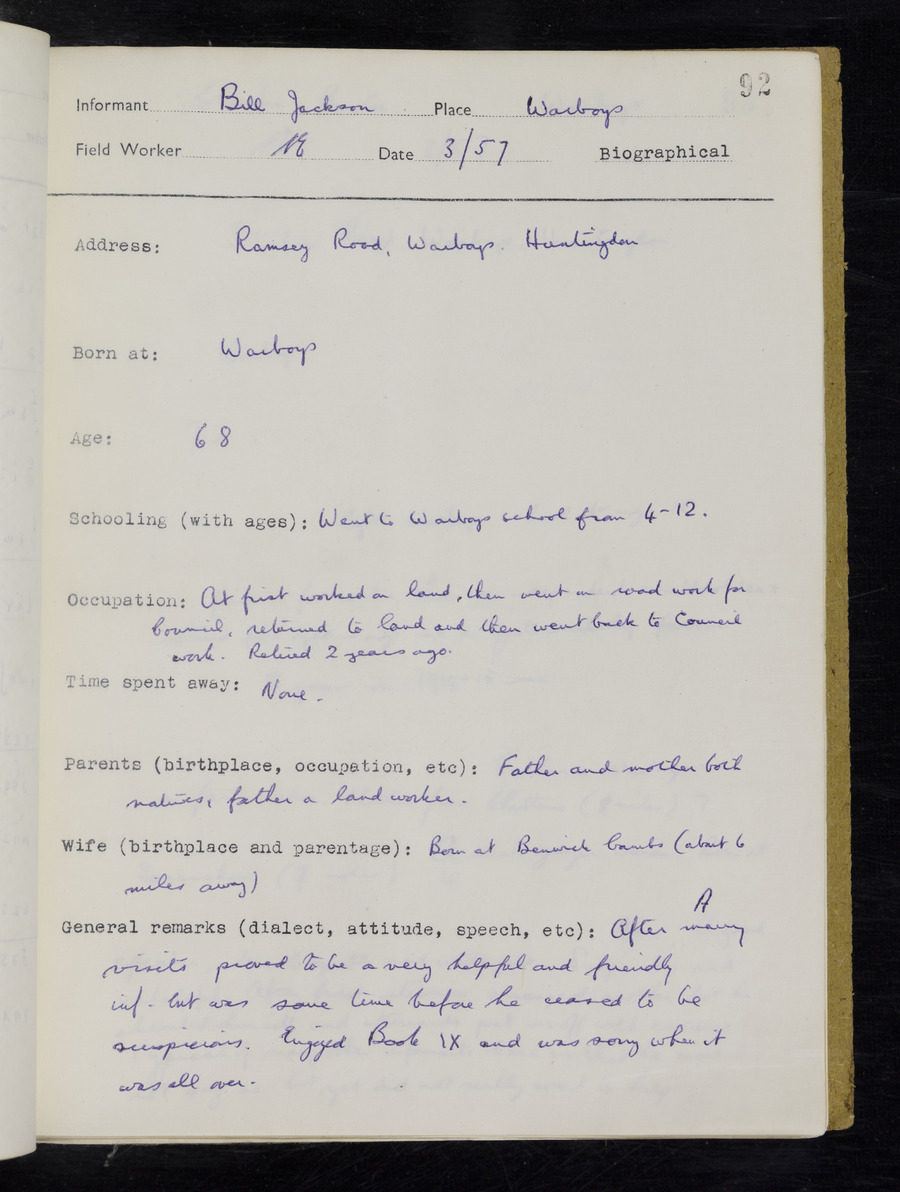 92
Informant Bill Jackson Place Warboys
Field Worker Date 3/57 Biographical
Address: Ramsey Road, Warboys. Huntingdon
Born at: Warboys
Age: 68
Schooling (with ages): Went to Warboys school from 4-12.
Occupation: At first worked on land, then went on road work for
Council, returned to land and then went back to Council
work. Retired 2 years ago.
Time spent away: None.
Parents (birthplace, occupation, etc): Father and mother both
natives, father a land worker.
Wife (birthplace and parentage): Born at Benwick Cambs (about 6
miles away)
A
General remarks (dialect, attitude, speech, etc): After many
visits proved to be a very helpful and friendly
inf. but was some time before he ceased to be
suspicious. Enjoyed Book IX and was sorry when it
was all over.